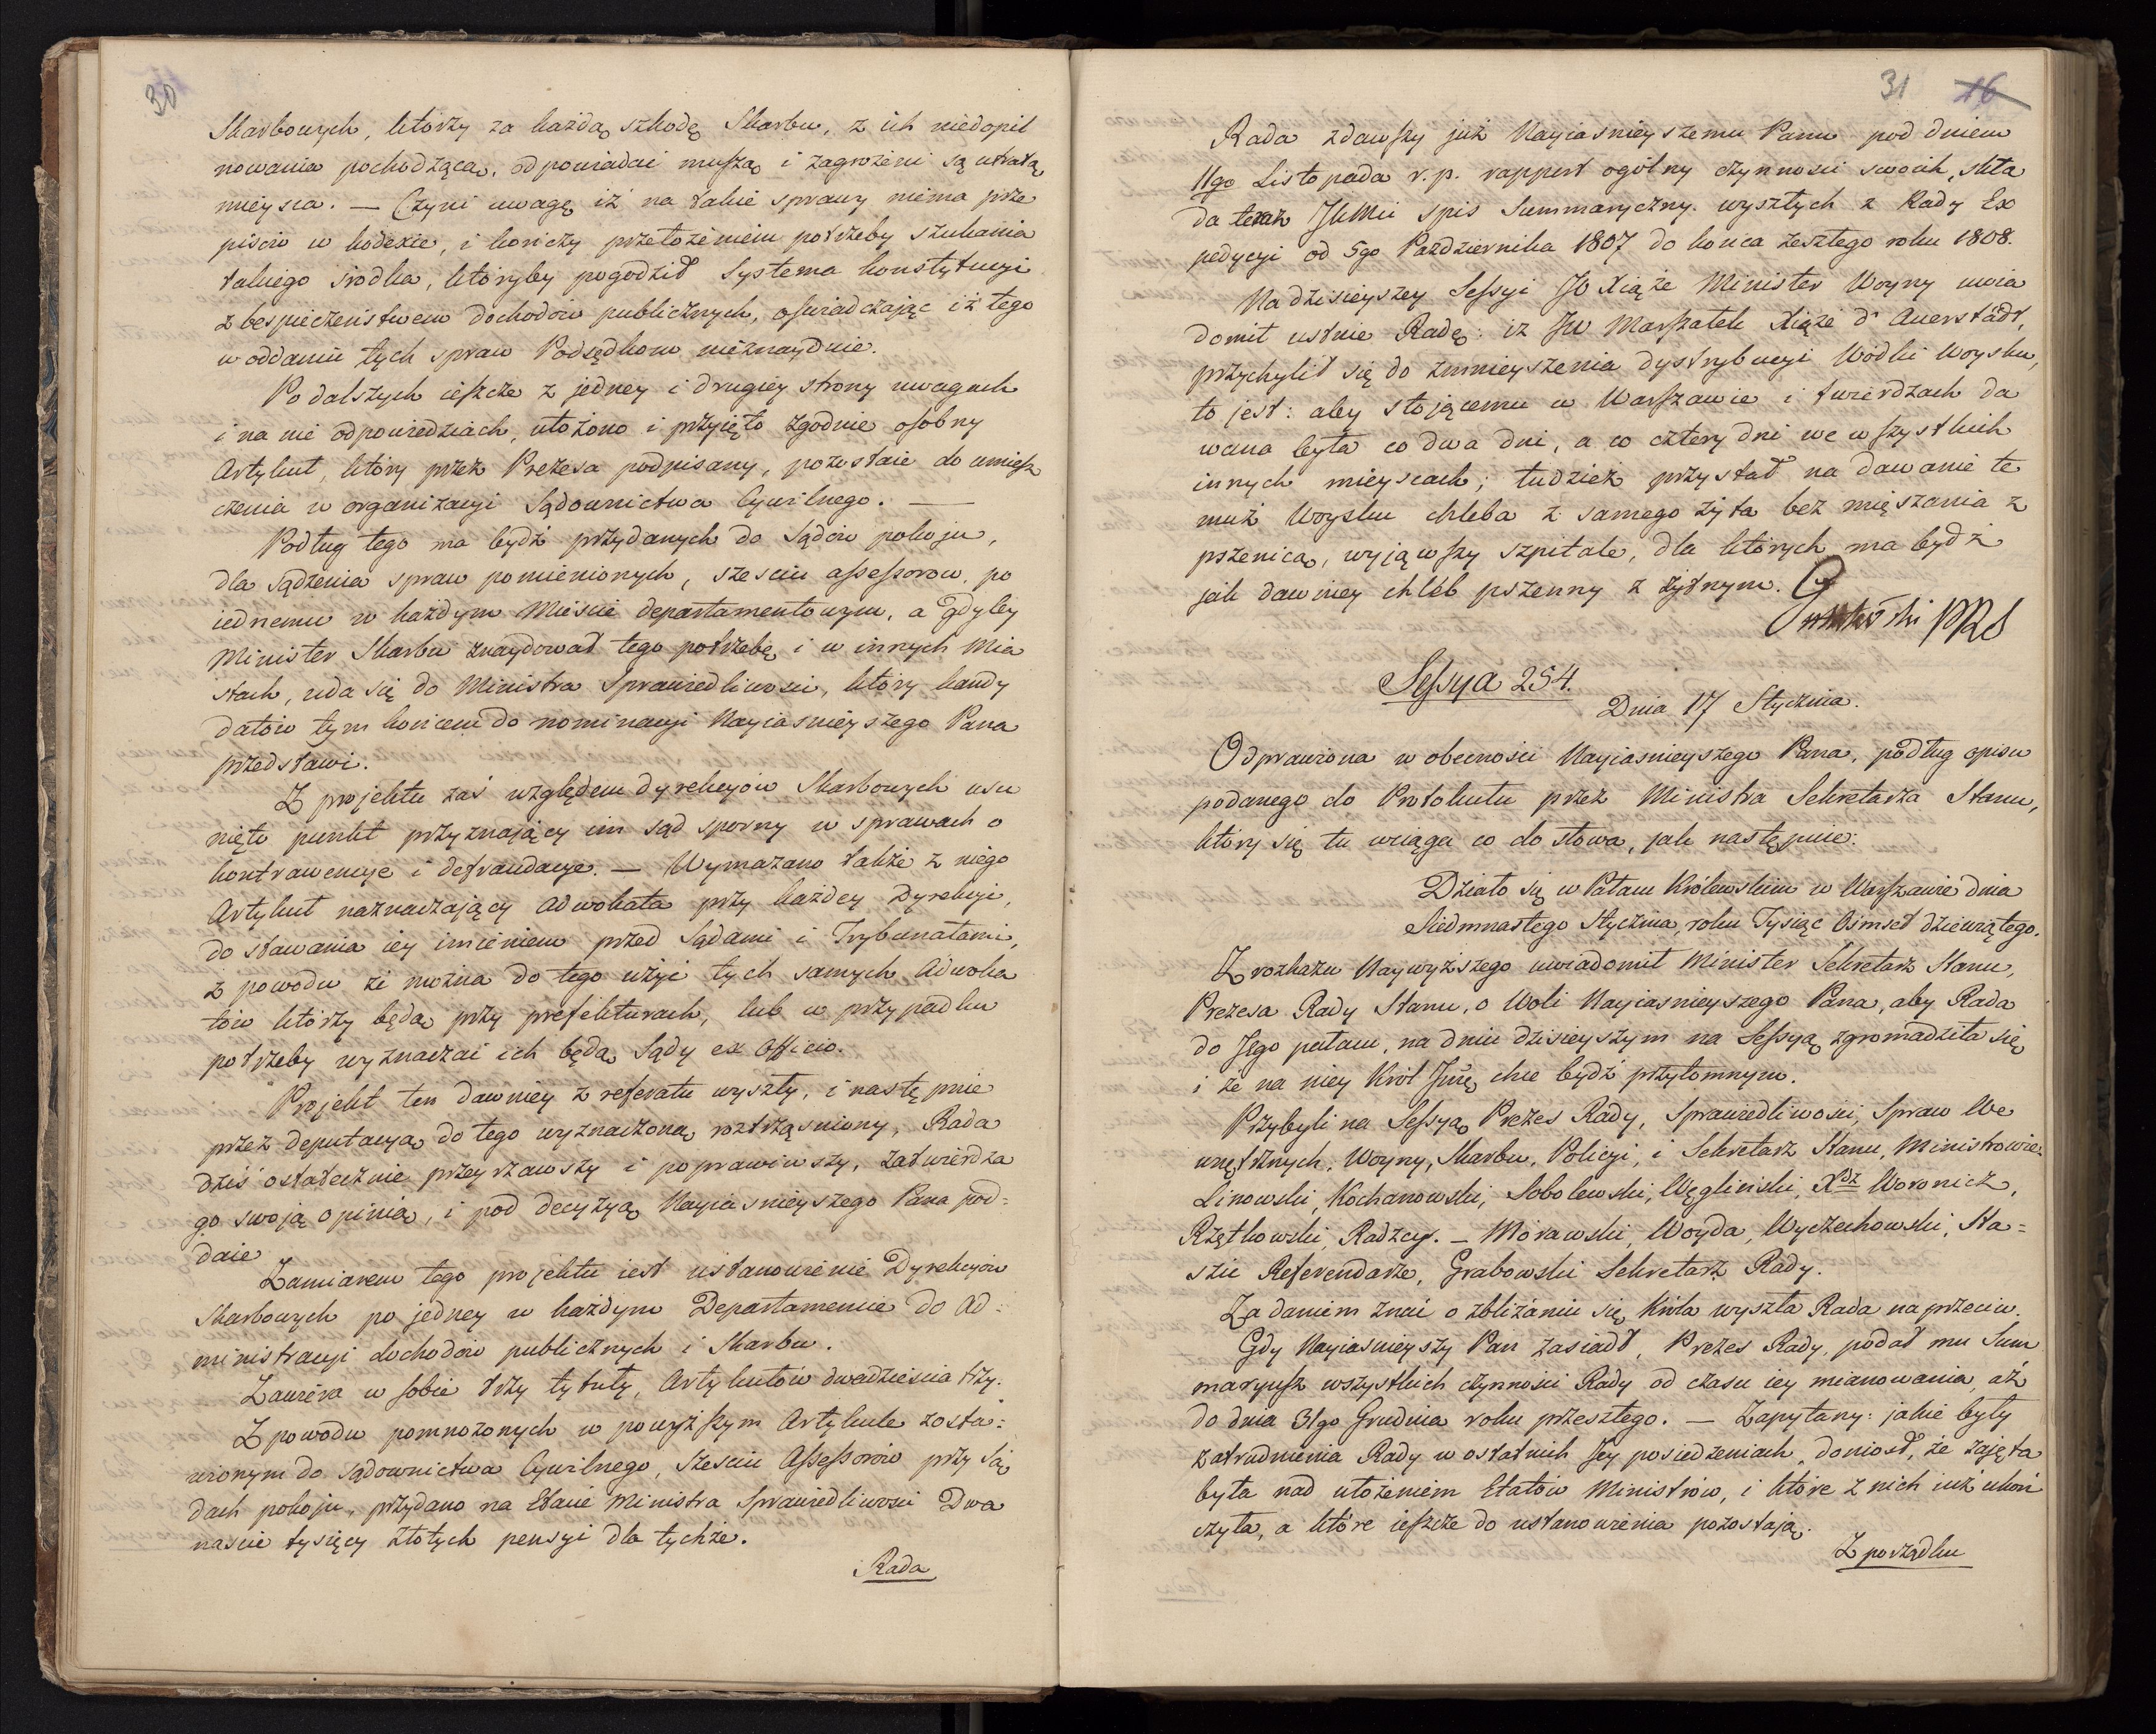 30
Skarbowych, którzy za każdą szkodę Skarbu, z ich niedopil
nowania pochodzącą, odpowiadać muszą i zagrożeni są utratą
mieysca. — Czyni uwagę iż na takie sprawy niema prze
pisów w kodexie, i kończy przełożeniem potrzeby szukania
takiego środka, któryby pogodził Systema konstytucyi
z bespieczeństwem dochodów publicznych, oświadczając iż tego
w oddaniu tych spraw Podsędkom nieznayduie.
Po dalszych ieszcze z jedney i drugiey strony uwagach
i na nie odpowiedziach, ułożono i przyięto zgodnie osobny
Artykuł, który przez Prezesa podpisany, pozostaie do umiesz
czenia w organizacyi Sądownictwa Cywilnego. —
Podług tego ma bydź przydanych do Sądów pokoju,
dla sądzenia spraw pomienionych, sześciu assessorow, po
iednemu w każdym Mieście departamentowym, a gdyby
Minister Skarbu znaydował tego potrzebę i w innych Mia
stach, uda się do Ministra Sprawiedliwości, który kandy
datów tym końcem do nominacyi Nayiaśnieyszego Pana
przedstawi.
Z projektu zaś względem dyrekcyów Skarbowych usu
nięto punkt przyznający im sąd sporny w sprawach o
kontrawencye i defraudacye. — Wymazano także z niego
Artykuł naznaczający adwokata przy każdey Dyrekcyi,
do stawania iey imieniem przed Sądami i Trybunałami,
z powodu że można do tego użyć tych samych Adwoka
tów którzy będą przy prefekturach, lub w przypadku
potrzeby wyznaczać ich będą Sądy ex officio.
Projekt ten dawniey z referatu wyszły, i następnie
przez deputacyą do tego wyznaczoną roztrząśniony, Rada
dziś ostatecznie przeyrzawszy i poprawiwszy, zatwierdza
go swoją opinią, i pod decyzyą Nayiaśnieyszego Pana pod=
daie
Zamiarem tego projektu iest ustanowienie Dyrekcyów
Skarbowych po jedney w każdym Departamencie do Ad=
ministracyi dochodów publicznych i Skarbu.
Zawiera w sobie trzy tytuły, Artykułów dwadzieścia trzy.
Z powodu pomnożonych w powyższym Artykule zosta=
wionym do sądownictwa Cywilnego, sześciu Assessorów przy Są
dach pokoju, przydano na Etacie Ministra Sprawiedliwości Dwa
naście tysięcy złotych pensyi dla tychże.
Rada
31 16
Rada zdawszy już Nayiaśnieyszemu Panu pod dniem
11go Listopada r. p. rapport ogólny czynności swoich, skła
da teraz JKMci spis Summaryczny wyszłych z Rady Ex
pedycyi od 5go Października 1807 do końca zeszłego roku 1808.
Na dzisieyszey Sessyi JO Xiąże Minister Woyny uwia
domił ustnie Radę: iż JW Marszałek Xiąże d'Auerstädt,
przychylił się do zmnieyszenia dystrybucyi Wódki Woysku,
to jest: aby stojącemu w Warszawie i twierdzach da
wana była co dwa dni, a co cztery dni we wszystkich
innych mieyscach; tudzież przystał na dawanie te
muż Woysku chleba z samego żyta bez mięszania z
pszenicą, wyjąwszy szpitale, dla których ma bydź
jak dawniey chleb pszenny z żytnym.
PRS
Sessya 254.
Dnia 17 Stycznia.
Odprawiona w obecności Nayiaśnieyszego Pana, podług opisu
podanego do Protokułu przez Ministra Sekretarza Stanu,
który się tu wciąga co do słowa, jak następuie:
Działo się w Pałacu Królewskim w Warszawie dnia
Siedmnastego Stycznia, roku Tysiąc Ośmset dziewiątego.
Z rozkazu Naywyższego uwiadomił Minister Sekretarz Stanu,
Prezesa Rady Stanu, o Woli Nayiaśnieyszego Pana, aby Rada
do Jego pałacu, na dniu dzisieyszym na Sessyą zgromadziła się
i że na niey Król Jmć chce bydź przytomnym.
Przybyli na Sessyą Prezes Rady, Sprawiedliwości, Spraw We
wnętrznych, Woyny, Skarbu, Policyi, i Sekretarz Stanu, Ministrowie.
Linowski, Kochanowski, Sobolewski, Węgliński, Xdz Woronicz,
Rzętkowski, Radzcy. — Morawski, Woyda, Wyczechowski, Sta=
szic Referendarze, Grabowski Sekretarz Rady.
Za daniem znać o zbliżaniu się Króla wyszła Rada na przeciw.
Gdy Nayiaśnieyszy Pan zasiadł, Prezes Rady, podał mu Sum
maryusz wszystkich czynności Rady od czasu iey mianowania, aż
do dnia 31go Grudnia roku przeszłego. — Zapytany: jakie były
zatrudnienia Rady w ostatnich Jey posiedzeniach, doniosł, że zajęta
była nad ułożeniem Etatów Ministrów, i które z nich iuż ukoń
czyła, a które ieszcze do ustanowienia pozostają.
Z porządku